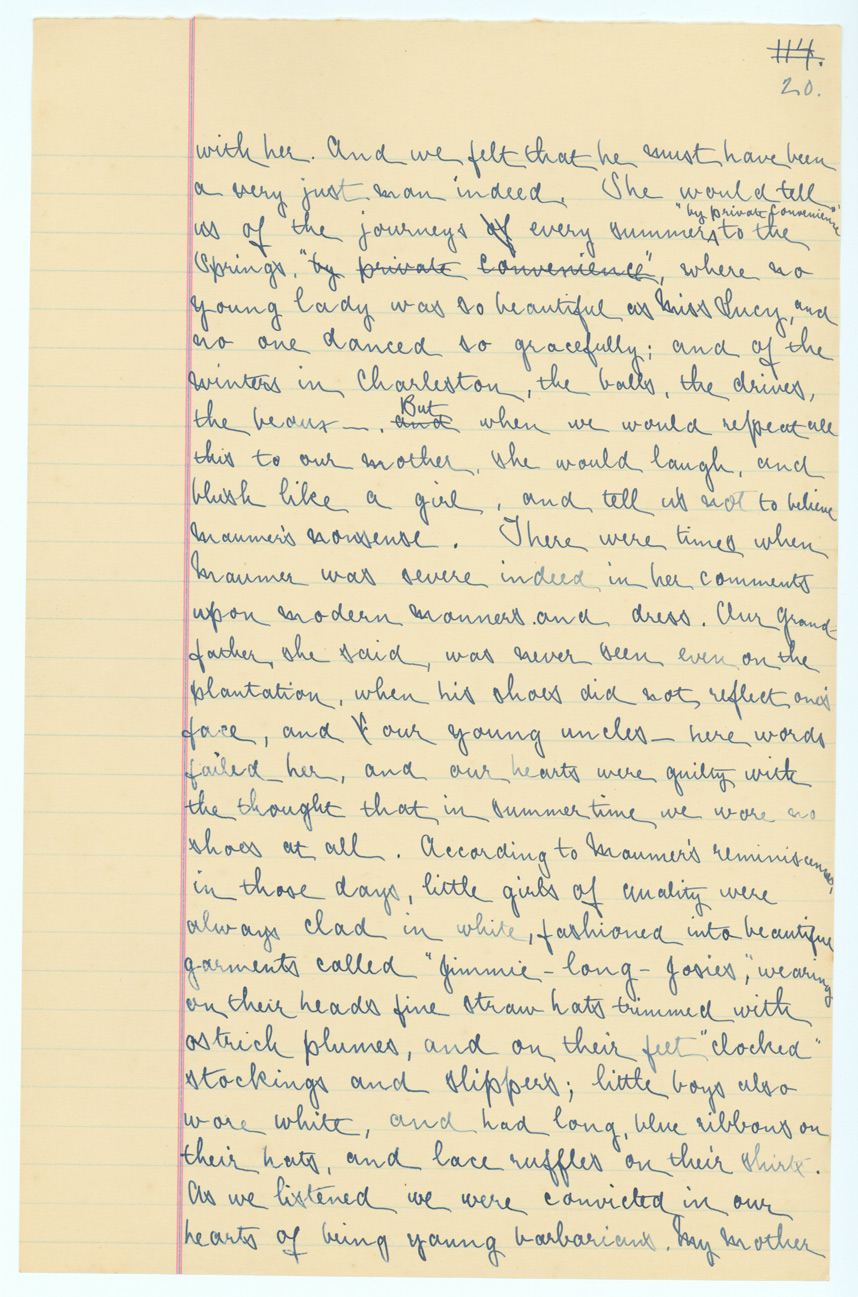 114.
20.
with her. And we felt that he must have been
a very just man indeed. She would tell
"by private Convenience"
us of the journeys of every summer, to the
Springs, "by private convenience", where no
young lady was so beautiful as Miss Lucy, and
no one danced so gracefully; and of the
winters in Charleston, the balls, the drives,
the beaux —. and But when we would repeat all
this to our mother, she would laugh, and
blush like a girl, and tell us not to believe
Maumer's nonsense. There were times when
Maumer was severe indeed in her comments
upon modern manners and dress. Our Grand-
father, she said, was never seen even on the
plantation, when his shoes did not reflect one's
face, and our young uncles — here words
failed her, and our hearts were guilty with
the thought that in summer time we wore no
shoes at all. According to Maumer's reminiscences,
in those days, little girls of quality were
always clad in white, fashioned into beautiful
garments called "Jimmie-long-Josies", wearing
on their heads fine straw hats trimmed with
ostrich plumes, and on their feet "clocked"
stockings and slippers; little boys also
wore white, and had long, blue ribbons on
their hats, and lace ruffles on their shirts.
As we listened we were convicted in our
hearts of being young barbarians. My mother